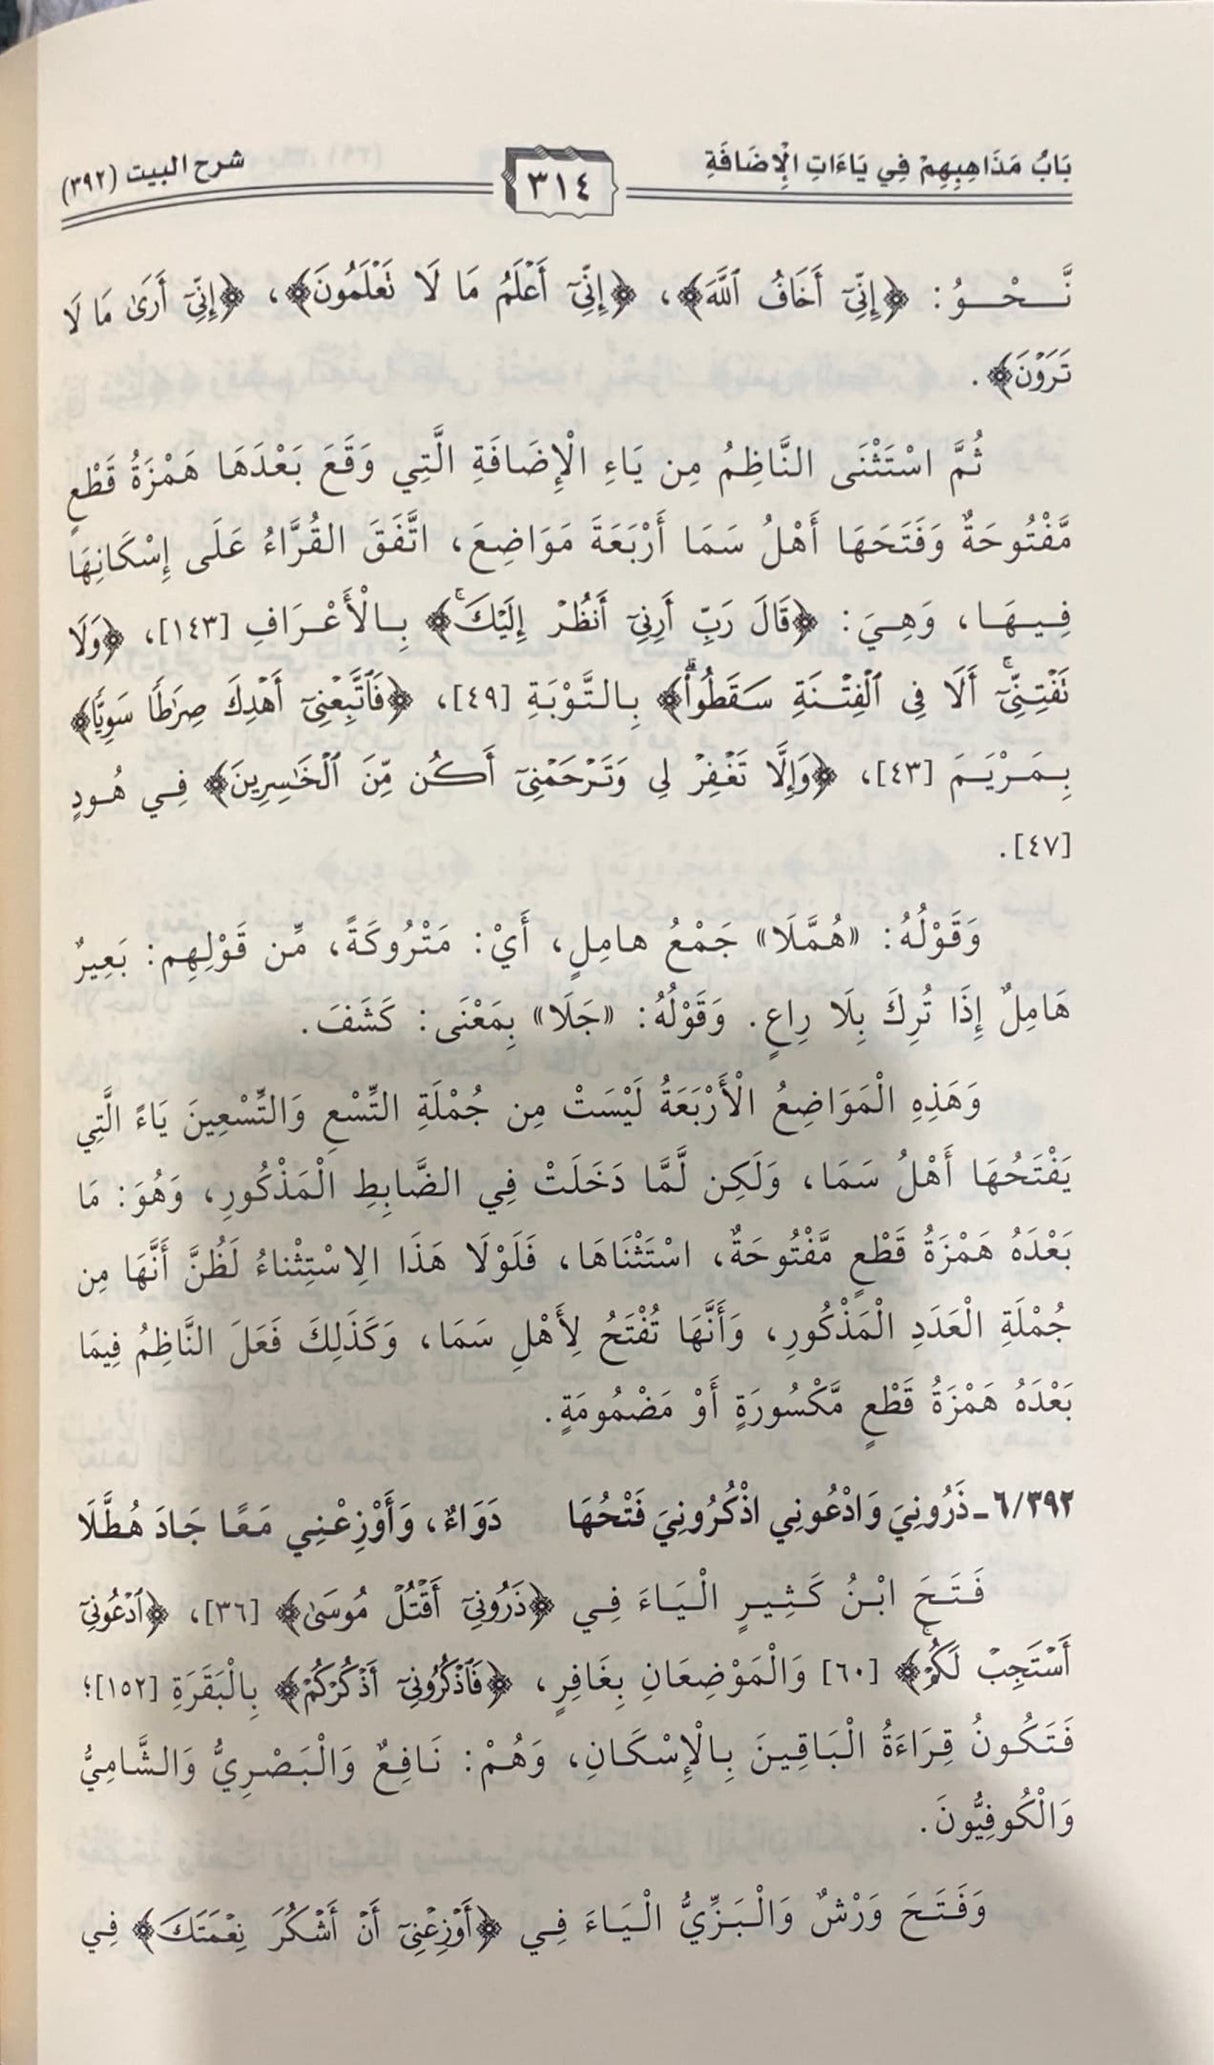 بَابُ مَذَاهِبِهِمْ فِي يَاءَاتِ الْإِضَافَةِ
٣١٤
شرح البيت (٣٩٢)
نَّحْوُ: ﴿إِنِّيٓ أَخَافُ ٱللَّهَ﴾، ﴿إِنِّيٓ أَعۡلَمُ مَا لَا تَعۡلَمُونَ﴾، ﴿إِنِّيٓ أَرَىٰ مَا لَا
تَرَوۡنَ﴾.
ثُمَّ اسْتَثْنَى النَّاظِمُ مِن يَاءِ الْإِضَافَةِ الَّتِي وَقَعَ بَعْدَهَا هَمْزَةُ قَطْعٍ
مَّفْتُوحَةٌ وَفَتَحَهَا أَهْلُ سَمَا أَرْبَعَةَ مَوَاضِعَ، اتَّفَقَ الْقُرَّاءُ عَلَى إِسْكَانِهَا
فِيهَا، وَهِيَ: ﴿قَالَ رَبِّ أَرِنِيٓ أَنظُرۡ إِلَيۡكَۚ﴾ بِالْأَعْرَافِ [١٤٣]، ﴿وَلَا
تَفۡتِنِّيٓۚ أَلَا فِي ٱلۡفِتۡنَةِ سَقَطُواْۗ﴾ بِالتَّوْبَةِ [٤٩]، ﴿فَٱتَّبِعۡنِيٓ أَهۡدِكَ صِرَٰطٗا سَوِيّٗا﴾
بِمَرْيَمَ [٤٣]، ﴿وَإِلَّا تَغۡفِرۡ لِي وَتَرۡحَمۡنِيٓ أَكُن مِّنَ ٱلۡخَٰسِرِينَ﴾ فِي هُودٍ
[٤٧].
وَقَوْلُهُ: «هُمَّلَا» جَمْعُ هامِلٍ، أَيْ: مَتْرُوكَةً، مِّن قَوْلِهِم: بَعِيرٌ
هَامِلٌ إِذَا تُرِكَ بِلَا رِاعٍ. وَقَوْلُهُ: «جَلَا» بِمَعْنَى: كَشَفَ.
وَهَذِهِ الْمَوَاضِعُ الْأَرْبَعَةُ لَيْسَتْ مِن جُمْلَةِ التِّسْعِ وَالتِّسْعِينَ يَاءً الَّتِي
يَفْتَحُهَا أَهْلُ سَمَا، وَلَكِن لَّمَّا دَخَلَتْ فِي الضَّابِطِ الْمَذْكُورِ، وَهُوَ: مَا
بَعْدَهُ هَمْزَةُ قَطْعٍ مَّفْتُوحَةٌ، اسْتَثْنَاهَا، فَلَوْلَا هَذَا الِاسْتِثْناءُ لَظُنَّ أَنَّهَا مِن
جُمْلَةِ الْعَدَدِ الْمَذْكُورِ، وَأَنَّهَا تُفْتَحُ لِأَهْلِ سَمَا، وَكَذَلِكَ فَعَلَ النَّاظِمُ فِيمَا
بَعْدَهُ هَمْزَةُ قَطْعٍ مَّكْسُورَةٍ أَوْ مَضْمُومَةٍ.
٦/٣٩٢- ذَرُونِيَ وَادْعُونِي اذْكُرُونِيَ فَتْحُهَا دَوَاءٌ، وَأَوْزِعْنِي مَعًا جَادَ هُطَّلَا
فَتَحَ ابْنُ كَثِيرٍ الْيَاءَ فِي ﴿ذَرُونِيٓ أَقۡتُلۡ مُوسَىٰ﴾ [٣٦]، ﴿ٱدۡعُونِيٓ
أَسۡتَجِبۡ لَكُمۡۚ﴾ [٦٠] وَالْمَوْضِعَانِ بِغَافِرٍ، ﴿فَٱذۡكُرُونِيٓ أَذۡكُرۡكُمۡ﴾ بِالْبَقَرَةِ [١٥٢]؛
فَتَكُونُ قِرَاءَةُ الْبَاقِينَ بِالْإِسْكَانِ، وَهُمْ: نَافِعٌ وَالْبَصْرِيُّ وَالشَّامِيُّ
وَالْكُوفِيُّونَ.
وَفَتَحَ وَرْشٌ وَالْبَزِّيُّ الْيَاءَ فِي ﴿أَوۡزِعۡنِيٓ أَنۡ أَشۡكُرَ نِعۡمَتَكَ﴾ فِي